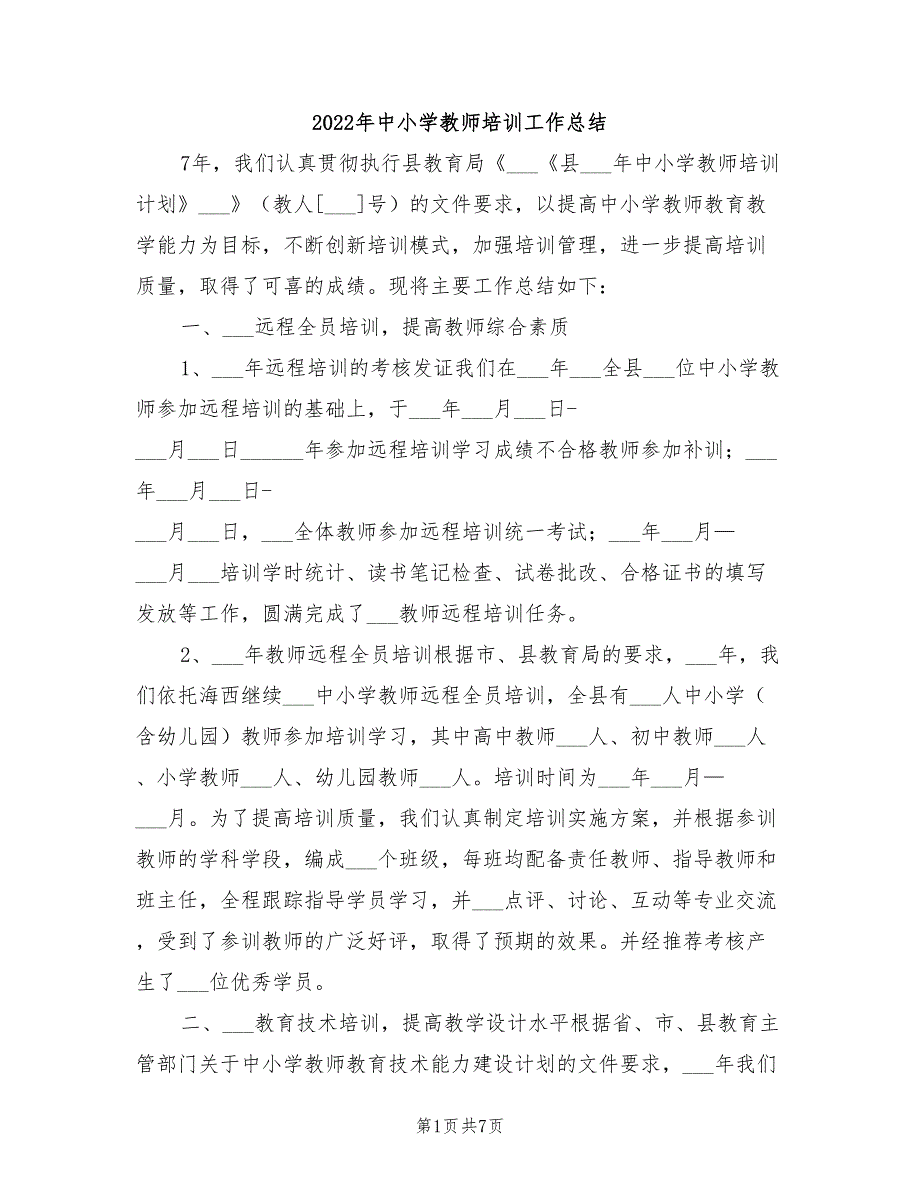 2022年中小学教师培训工作总结
7年，我们认真贯彻执行县教育局《___《县___年中小学教师培训
计划》___》（教人[___]号）的文件要求，以提高中小学教师教育教
学能力为目标，不断创新培训模式，加强培训管理，进一步提高培训
质量，取得了可喜的成绩。现将主要工作总结如下：
一、___远程全员培训，提高教师综合素质
1、___年远程培训的考核发证我们在___年___全县___位中小学教
师参加远程培训的基础上，于___年___月___日-
___月___日______年参加远程培训学习成绩不合格教师参加补训；___
年___月___日-
___月___日，___全体教师参加远程培训统一考试；___年___月—
___月___培训学时统计、读书笔记检查、试卷批改、合格证书的填写
发放等工作，圆满完成了___教师远程培训任务。
2、___年教师远程全员培训根据市、县教育局的要求，___年，我
们依托海西继续___中小学教师远程全员培训，全县有___人中小学（
含幼儿园）教师参加培训学习，其中高中教师___人、初中教师___人
、小学教师___人、幼儿园教师___人。培训时间为___年___月—
___月。为了提高培训质量，我们认真制定培训实施方案，并根据参训
教师的学科学段，编成___个班级，每班均配备责任教师、指导教师和
班主任，全程跟踪指导学员学习，并___点评、讨论、互动等专业交流
，受到了参训教师的广泛好评，取得了预期的效果。并经推荐考核产
生了___位优秀学员。
二、___教育技术培训，提高教学设计水平根据省、市、县教育主
管部门关于中小学教师教育技术能力建设计划的文件要求，___年我们
第1页共7页